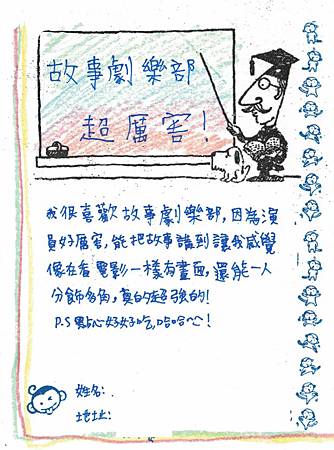 故事劇樂部
超厲害!
我很喜歡故事劇樂部,因為演
員好厲害,能把故事講到讓我感覺
像在看電影一樣有畫面,還能一人
分飾多角,真的超強的!
P.S點心好好吃,哈哈~!
姓名:
地址: